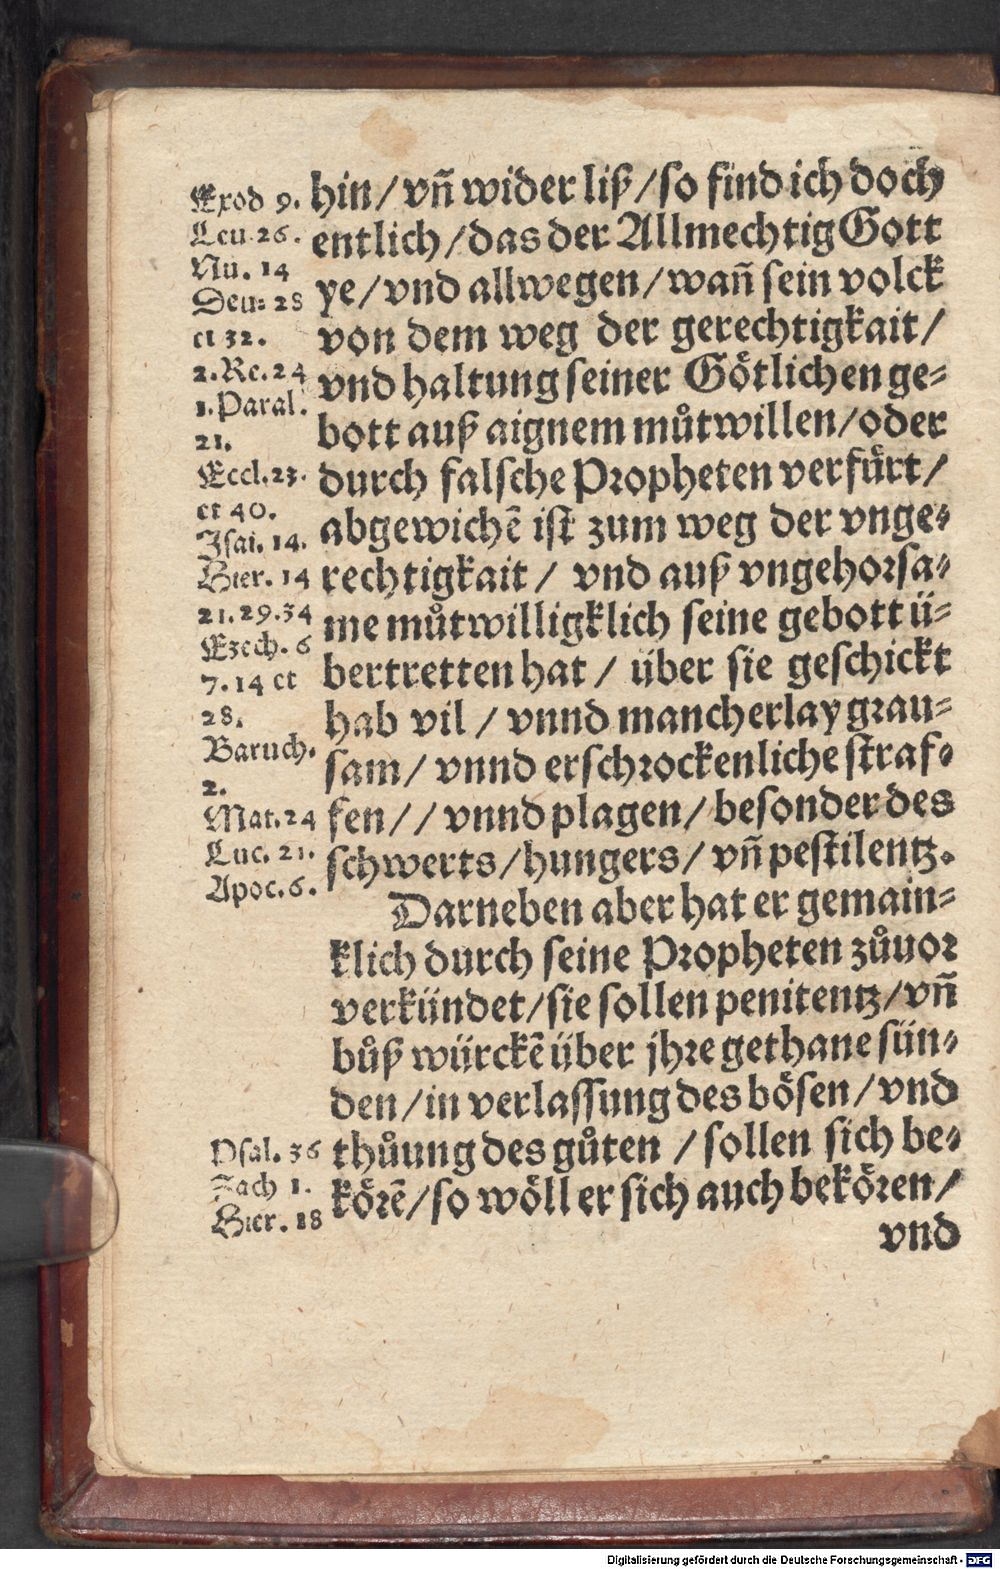 Exod 9.
Leu. 26.
Nu. 14
Deu: 28
et 32.
2. Re. 24
1. Paral.
21.
Eccl. 23.
et 40.
Isai. 14.
Hier. 14
21. 29. 34
Ezech. 6
7. 14 et
28.
Baruch.
2.
Mat. 24
Luc. 21.
Apoc. 6.
hin / vn̄ wider liß / so find ich doch
entlich / das der Allmechtig Gott
ye / vnd allwegen / wan̄ sein volck
von dem weg der gerechtigkait /
vnd haltung seiner Götlichen ge-
bott auß aignem můtwillen / oder
durch falsche Propheten verfürt /
abgewichē ist zum weg der vnge-
rechtigkait / vnd auß vngehorsa-
me můtwilligklich seine gebott ü-
bertretten hat / über sie geschickt
hab vil / vnnd mancherlay grau-
sam / vnnd erschrockenliche straf-
fen / / vnnd plagen / besonder des
schwerts / hungers / vn̄ pestilentz.
Darneben aber hat er gemain-
klich durch seine Propheten zůuor
verkündet / sie sollen penitentz / vn̄
bůß würckē über jhre gethane sün-
den / in verlassung des bösen / vnd
thůung des gůten / sollen sich be-
körē / so wöll er sich auch bekören /
Psal. 36
Zach 1.
Hier. 18
vnd
Digitalisierung gefördert durch die Deutsche Forschungsgemeinschaft - DFG